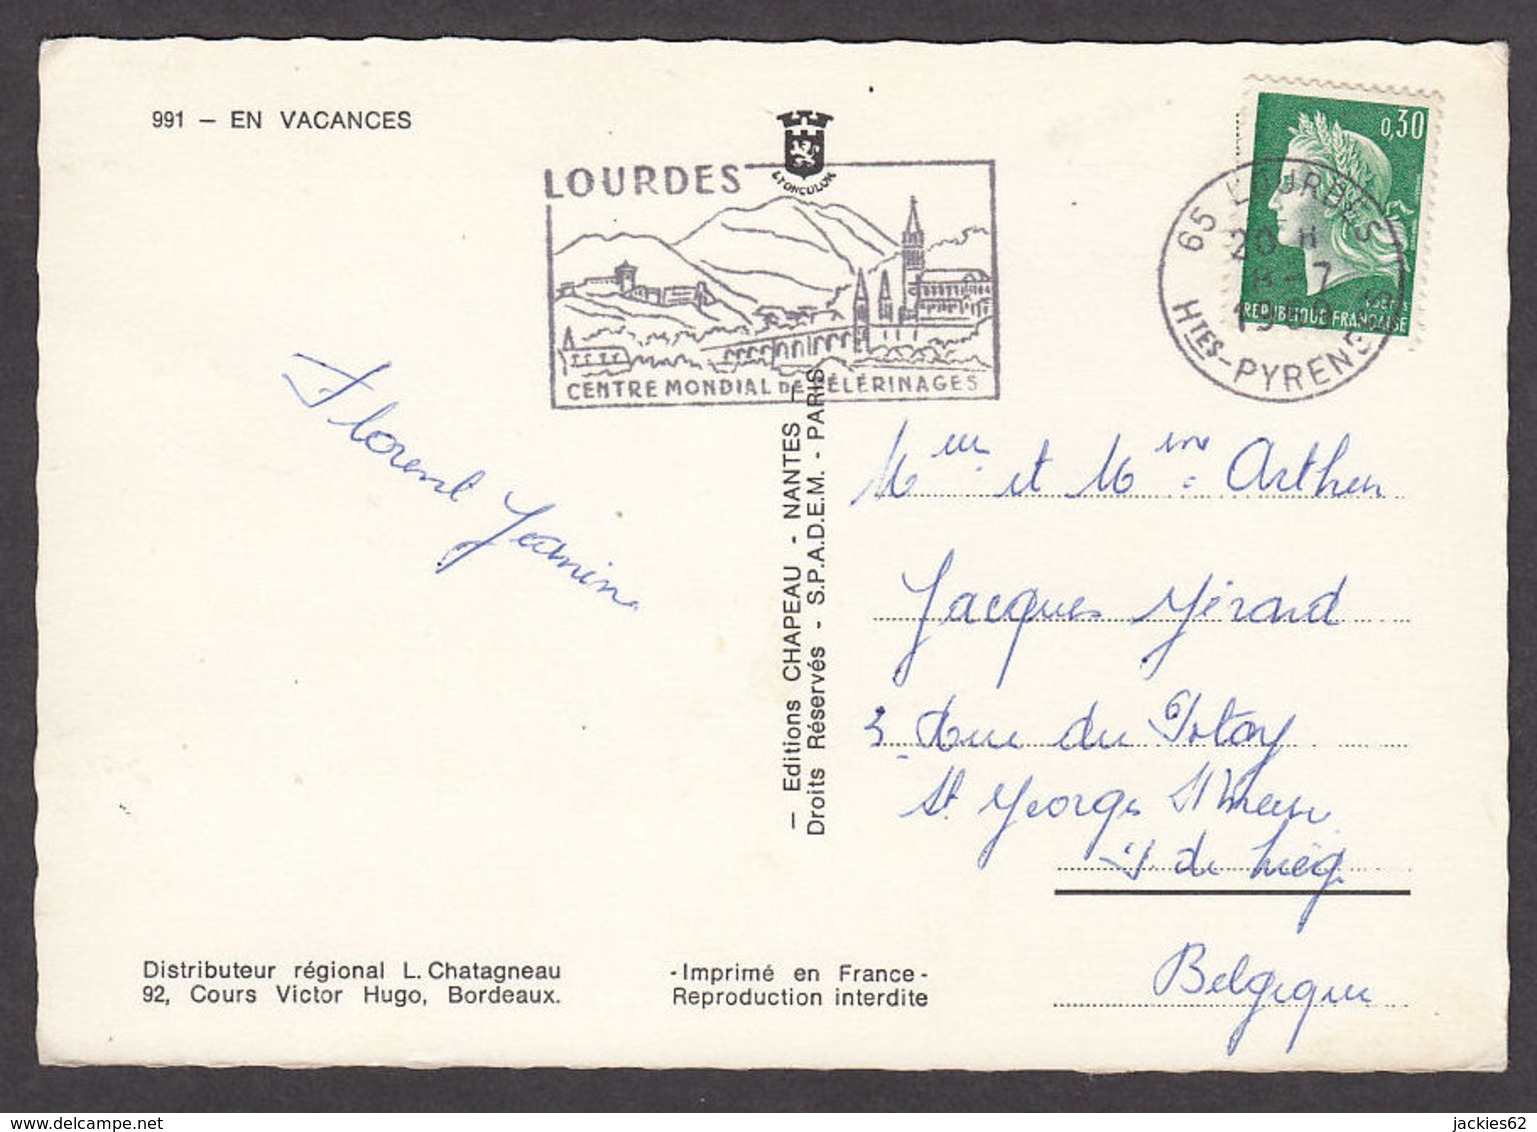 991 — EN VACANCES
LYONCOLOR
LOURDES
CENTRE MONDIAL DE PÈLERINAGES
0,30
REPUBLIQUE FRANÇAISE
65 LOURDES
20 H
8-7
HTES-PYRENEES
Florent Jeanine
— Editions CHAPEAU - NANTES —
Droits Réservés - S.P.A.D.E.M. - PARIS
Meur et Mme Arthur
Jacques Gérard
3 Rue du
St Georges S/Meuse
de Liège
Belgique
Distributeur régional L. Chatagneau
92, Cours Victor Hugo, Bordeaux.
- Imprimé en France -
Reproduction interdite
delcampe.net
jackies62